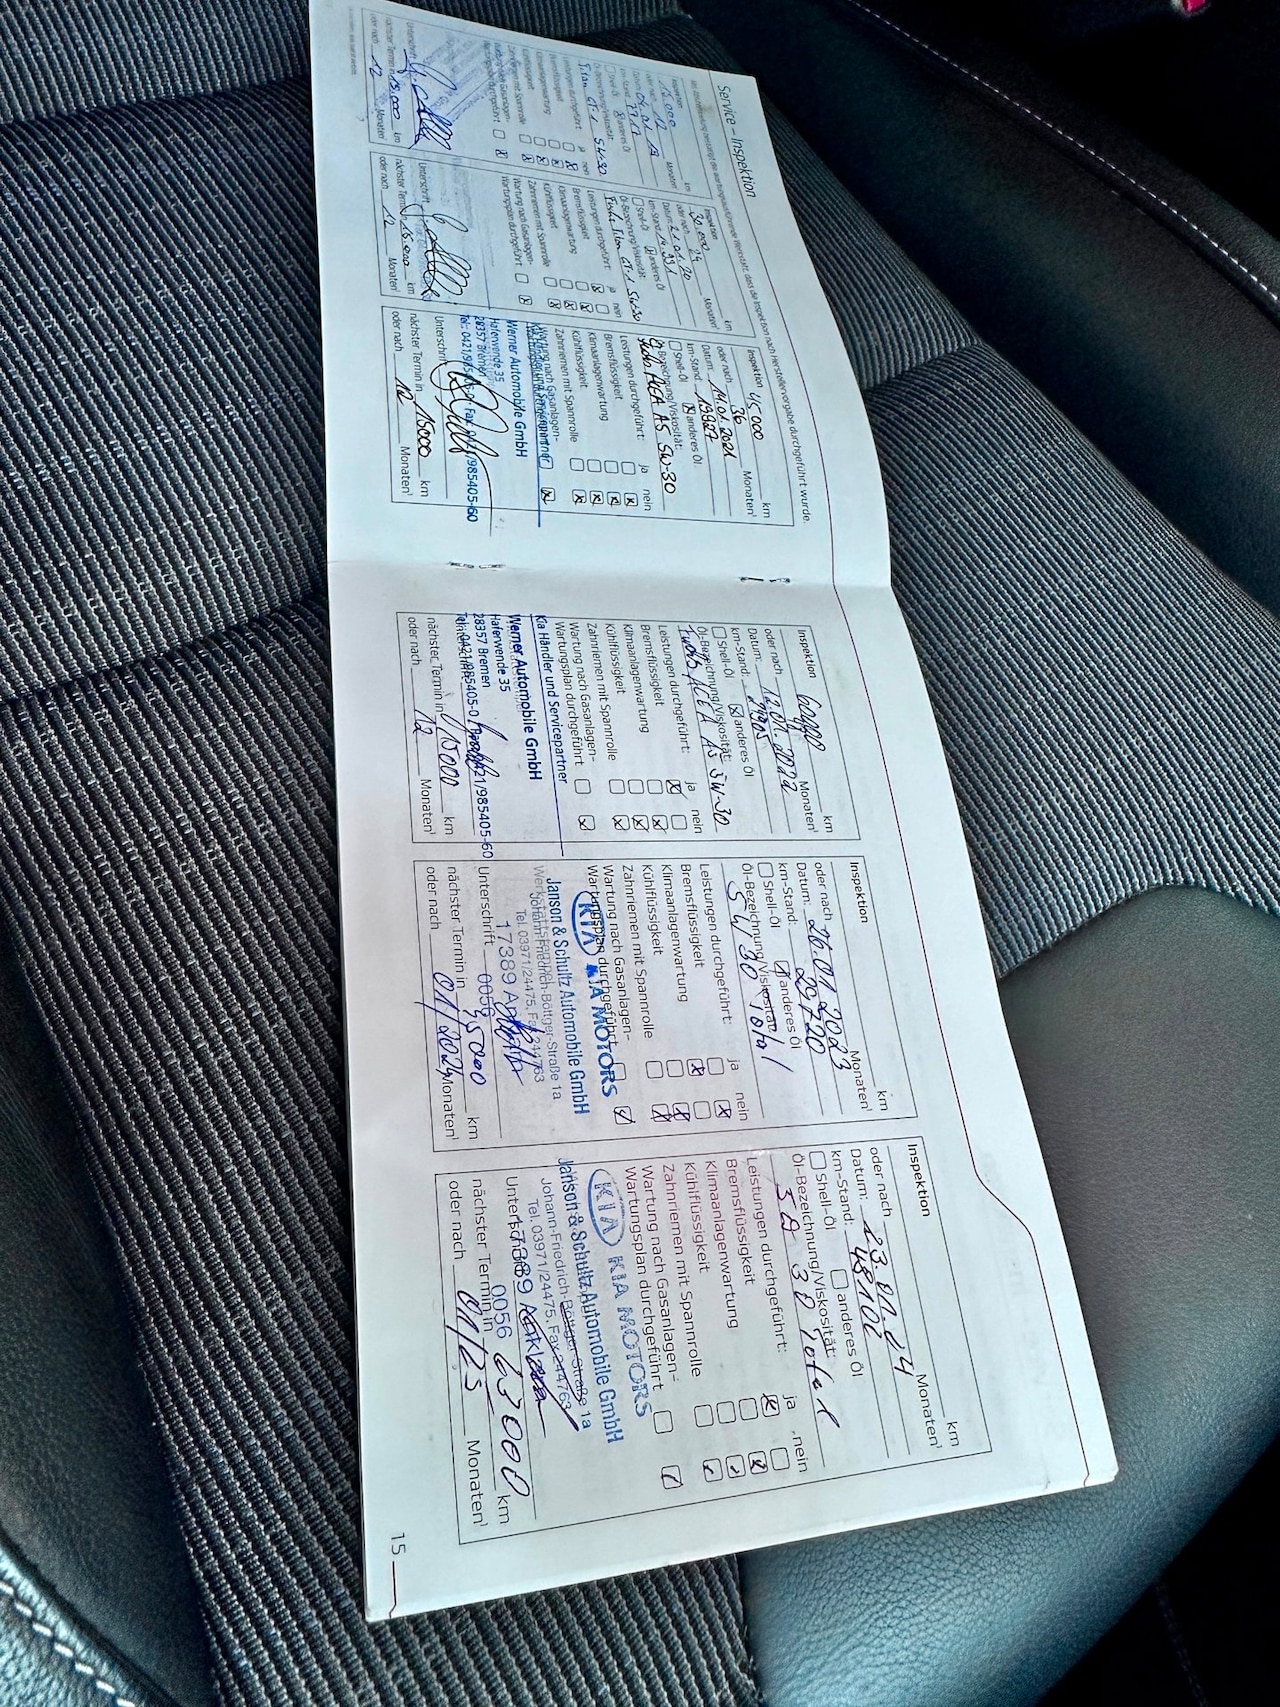 Service – Inspektion
Mit der Abstempelung bestätigt die wartungsausführende Werkstatt, dass die Inspektion nach Herstellervorgabe durchgeführt wurde.
Inspektion 15.000 km
oder nach 12 Monaten¹
Datum: 04.01.19
km-Stand:
Shell-Öl anderes Öl
Öl-Bezeichnung/Viskosität:
Titan GT-1 5W-30
Leistungen durchgeführt: ja nein
Bremsflüssigkeit
Klimaanlagenwartung
Kühlflüssigkeit
Zahnriemen mit Spannrolle
Wartung nach Gasanlagen-
Wartungsplan durchgeführt
Unterschrift
nächster Termin in 15.000 km
oder nach 12 Monaten¹
Inspektion 30.000 km
oder nach 24 Monaten¹
Datum: 21.01.20
km-Stand:
Shell-Öl anderes Öl
Öl-Bezeichnung/Viskosität:
Fuchs Titan GT-1 5W-30
Leistungen durchgeführt: ja nein
Bremsflüssigkeit
Klimaanlagenwartung
Kühlflüssigkeit
Zahnriemen mit Spannrolle
Wartung nach Gasanlagen-
Wartungsplan durchgeführt
Unterschrift
nächster Termin in 15.000 km
oder nach 12 Monaten¹
Inspektion 45000 km
oder nach 36 Monaten¹
Datum: 14.01.2021
km-Stand: 19827
Shell-Öl anderes Öl
Öl-Bezeichnung/Viskosität:
Fuchs ACEA A5 5W-30
Leistungen durchgeführt: ja nein
Bremsflüssigkeit
Klimaanlagenwartung
Kühlflüssigkeit
Zahnriemen mit Spannrolle
Wartung nach Gasanlagen-
Kia Händler und Servicepartner
Werner Automobile GmbH
Haferwende 35
28357 Bremen
Tel.: 0421/985405-0 Fax: 0421/985405-60
Unterschrift
nächster Termin in 15000 km
oder nach 12 Monaten¹
Inspektion 60000 km
oder nach Monaten¹
Datum: 12.01.2022
km-Stand:
Shell-Öl anderes Öl
Öl-Bezeichnung/Viskosität:
Fuchs ACEA A5 5W-30
Leistungen durchgeführt: ja nein
Bremsflüssigkeit
Klimaanlagenwartung
Kühlflüssigkeit
Zahnriemen mit Spannrolle
Wartung nach Gasanlagen-
Wartungsplan durchgeführt
Kia Händler und Servicepartner
Werner Automobile GmbH
Haferwende 35
28357 Bremen
Tel.: 0421/985405-0 Fax: 0421/985405-60
nächster Termin in 15000 km
oder nach 12 Monaten¹
Inspektion km
oder nach Monaten¹
Datum: 26.01.2023
km-Stand: 29720
Shell-Öl anderes Öl
Öl-Bezeichnung/Viskosität:
5W30 Total
Leistungen durchgeführt: ja nein
Bremsflüssigkeit
Klimaanlagenwartung
Kühlflüssigkeit
Zahnriemen mit Spannrolle
Wartung nach Gasanlagen-
Wartungsplan durchgeführt
KIA KIA MOTORS
Janson & Schultz Automobile GmbH
Johann-Friedrich-Böttger-Straße 1a
Tel. 03971/24475, Fax 244763
17389 Anklam
Unterschrift 0056
nächster Termin in km
oder nach 01/2024 Monaten¹
Inspektion km
oder nach Monaten¹
Datum: 23.01.24
km-Stand: 48102
Shell-Öl anderes Öl
Öl-Bezeichnung/Viskosität:
Total
Leistungen durchgeführt: ja nein
Bremsflüssigkeit
Klimaanlagenwartung
Kühlflüssigkeit
Zahnriemen mit Spannrolle
Wartung nach Gasanlagen-
Wartungsplan durchgeführt
KIA KIA MOTORS
Janson & Schultz Automobile GmbH
Johann-Friedrich-Böttger-Straße 1a
Tel. 03971/24475, Fax 244763
17389 Anklam
Unterschrift
0056
nächster Termin in 63000 km
oder nach 01/25 Monaten¹
15